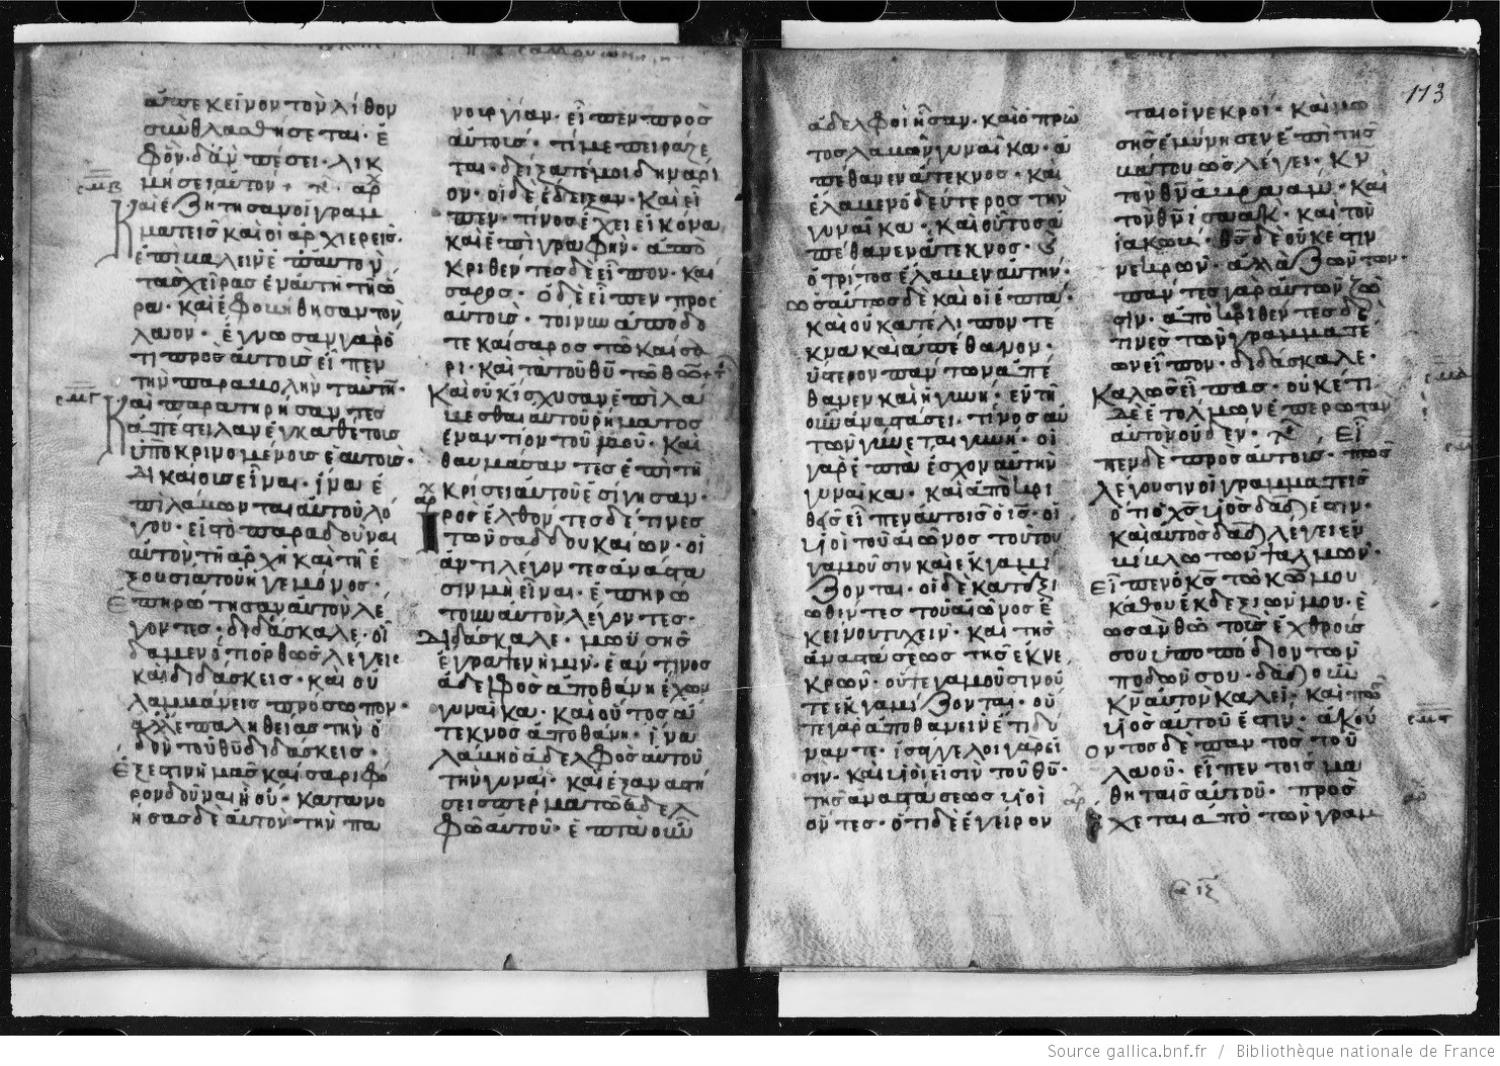 ἐπ' ἐκεῖνον τὸν λίθον
συνθλασθήσεται· ἐ
φ' ὃν δ' ἂν πέσει· λικ
μήσει αὐτόν
Καὶ ἐζήτησαν οἱ γραμ
ματεῖς καὶ οἱ ἀρχιερεῖς·
ἐπιβαλεῖν ἐπ' αὐτὸν
τὰς χεῖρας ἐν αὐτῇ τῇ ὥ
ρα· καὶ ἐφοβήθησαν τὸν
λαόν· ἔγνωσαν γὰρ ὅ
τι πρὸς αὐτοὺς εἶπεν
τὴν παραβολὴν ταύτην·
Καὶ παρατηρήσαντες
ἀπέστειλαν ἐγκαθέτους
ὑποκρινομένους ἑαυτοὺς·
δικαίους εἶναι· ἵνα ἐ
πιλάβωνται αὐτοῦ λό
γου· εἰς τὸ παραδοῦναι
αὐτὸν τῇ ἀρχῇ καὶ τῇ ἐ
ξουσία τοῦ ἡγεμόνος·
Ἐπηρώτησαν αὐτὸν λέ
γοντες· διδάσκαλε· οἴ
δαμεν ὅτι ὀρθῶς λέγεις
καὶ διδάσκεις· καὶ οὐ
λαμβάνεις πρόσωπον·
ἀλλ' ἐπ' ἀληθείας τὴν ὁ
δὸν τοῦ θῦ διδάσκεις·
Ἔξεστιν ἡμᾶς καίσαρι φό
ρον δοῦναι ἢ οὔ· κατανο
ήσας δὲ αὐτῶν τὴν πα
νουργίαν· εἶπεν πρὸς
αὐτούς· τί με πειράζε
ται· δείξατέ μοι δηνάρι
ον· οἱ δὲ ἔδειξαν· καὶ εἶ
πεν· τίνος ἔχει εἰκόνα
καὶ ἐπιγραφήν· ἀπο
κριθέντες δὲ εἶπον· καί
σαρος· ὁ δὲ εἶπεν πρὸς
αὐτούς· τοίνυν ἀπόδο
τε καίσαρος τῶ καίσα
ρι· καὶ τὰ τοῦ θῦ τῶ θῶ
Καὶ οὐκ ἴσχυσαν ἐπιλα
βέσθαι αὐτοῦ ῥήματος
ἐναντίον τοῦ λαοῦ· καὶ
θαυμάσαντες ἐπὶ τῇ
κρίσει αὐτοῦ ἐσίγησαν·
Προσελθόντες δέ τινες
τῶν σαδδουκαίων· οἱ
ἀντιλέγοντες ἀνάστα
σιν μὴ εἶναι· ἐπηρώ
των αὐτὸν λέγοντες·
Διδάσκαλε· μωϋσῆς
ἔγραψεν ἡμῖν· ἐάν τινος
ἀδελφὸς ἀποθάνη ἔχων
γυναῖκα· καὶ οὗτος ἄ
τεκνος ἀποθάνη· ἵνα
λάβη ὁ ἀδελφὸς αὐτοῦ
τὴν γυναῖκα· καὶ ἐξαναστή
σει σπέρμα τῶ ἀδελ
φῶ αὐτοῦ· ἑπτὰ οὖν
113
ἀδελφοὶ ἦσαν· καὶ ὁ πρῶ
τος λαβὼν γυναῖκα· ἀ
πέθανεν ἄτεκνος· καὶ
ἔλαβεν ὁ δεύτερος τὴν
γυναῖκα· καὶ οὗτος ἀ
πέθανεν ἄτεκνος· καὶ
ὁ τρίτος ἔλαβεν αὐτήν·
ὡσαύτως δὲ καὶ οἱ ἑπτά·
καὶ οὐ κατέλιπον τέ
κνα καὶ ἀπέθανον·
ὕστερον πάντων ἀπέ
θανεν καὶ ἡ γυνή· ἐν τῇ
οὖν ἀναστάσει· τίνος αὐ
τῶν γίνεται γυνή· οἱ
γὰρ ἑπτὰ ἔσχον αὐτὴν
γυναῖκα· καὶ ἀποκρι
θεὶς εἶπεν αὐτοῖς ὁ ἰς· οἱ
υἱοὶ τοῦ αἰῶνος τούτου
γαμοῦσιν καὶ ἐκγαμί
ζονται· οἱ δὲ καταξι
ωθέντες τοῦ αἰῶνος ἐ
κείνου τυχεῖν· καὶ τῆς
ἀναστάσεως τῆς ἐκ νε
κρῶν· οὔτε γαμοῦσιν οὔ
τε ἐκγαμίζονται· οὔ
τε γὰρ ἀποθανεῖν ἔτι δύ
νανται· ἰσάγγελοι γάρ εἰ
σιν· καὶ υἱοί εἰσιν τοῦ θῦ·
τῆς ἀναστάσεως υἱοὶ
ὄντες· ὅτι δὲ ἐγείρον
ται οἱ νεκροί· καὶ μω
σῆς ἐμήνυσεν ἐπὶ τῆς
βάτου ὡς λέγει· κν
τὸν θν ἀβραάμ· καὶ
τὸν θν ἰσαάκ· καὶ τὸν
ἰακώβ· θς δὲ οὐκ ἔστιν
νεκρῶν· ἀλλὰ ζώντων·
πάντες γὰρ αὐτῶ ζῶ
σιν· ἀποκριθέντες δέ
τινες τῶν γραμματέ
ων εἶπον· διδάσκαλε·
Καλῶς εἶπας· οὐκέτι
δὲ ἐτόλμων ἐπερωτᾶν
αὐτὸν οὐδέν· Εἶ
πεν δὲ πρὸς αὐτούς· πῶς
λέγουσιν οἱ γραμματεῖς
ὅτι ὁ χς υἱὸς δαδ ἐστιν·
καὶ αὐτὸς δαδ λέγει ἐν
βίβλω τῶν ψαλμῶν·
Εἶπεν ὁ κς τῶ κῶ μου
κάθου ἐκ δεξιῶν μου· ἕ
ως ἂν θῶ τοὺς ἐχθρούς
σου ὑποπόδιον τῶν
ποδῶν σου· δαδ οὖν
κν αὐτὸν καλεῖ· καὶ πῶς
υἱὸς αὐτοῦ ἐστιν· ἀκού
οντος δὲ παντὸς τοῦ
λαοῦ· εἶπεν τοῖς μα
θηταῖς αὐτοῦ· προσ
έχεται ἀπὸ τῶν γραμ
Source gallica.bnf.fr / Bibliothèque nationale de France